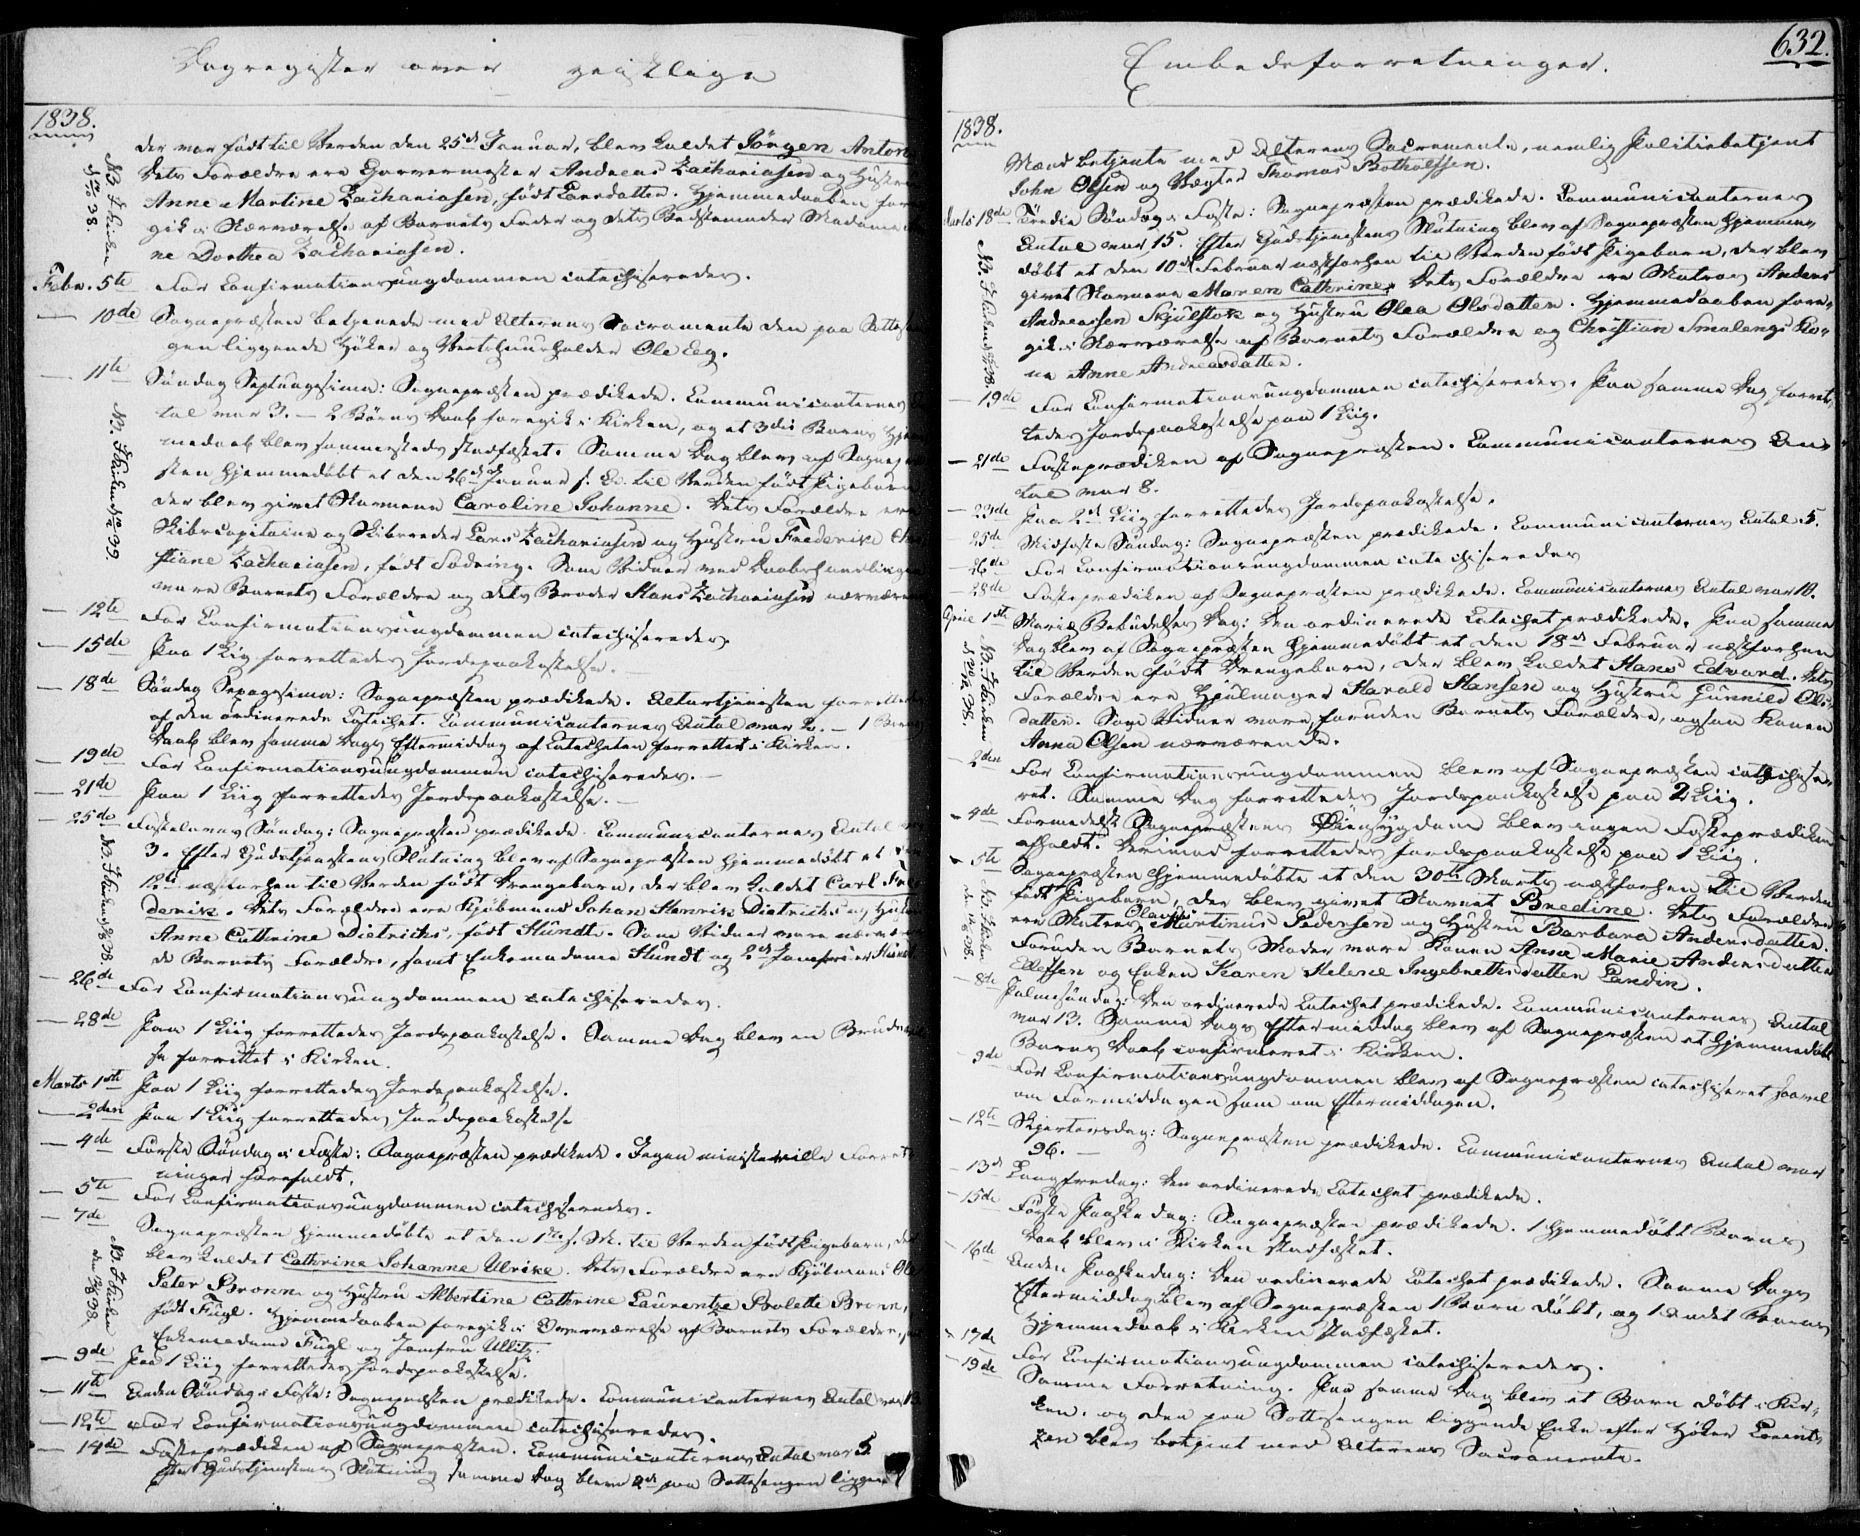 Dagregister over geistlige
1838.
der var født til Verden den 25de Januar, blev kaldet Jörgen Anton
Dets Forældre ere Garvermester Andreas Zachariasen og Hustru
Anne Martine Zachariasen, født Larsdatter. Hjemmedaaben fore
gik i Nærværelse af Barnets Fader og dets Bedstemoder Madame
ne Dorthea Zachariasen.
Febr. 5te For Confirmationsungdommen catechiseredes.
— 10de Sognepræsten betjenede med Alterens Sacramente den paa Sottese
gen liggende Høker og Vertshuusholder Ole Eeg.
— 11te Søndag Septuagesima: Sognepræsten prædikede. Communicanternes
tal var 3. — 2 Børns Daab foregik i Kirken, og et 3die Barns Hjem
medaab blev sammesteds stadfæstet. Samme Dag blev af Sognepræ
sten hjemmedøbt et den 26de Januar s. A. til Verden født Pigebarn
der blev givet Navnene Caroline Johanne. Dets Forældre ere
Skibscapitaine og Skibsreder Lars Zachariasen og Hustru Frederike Chri
stiane Zachariasen, født Södring. Som Vidner ved Daabshandlingen
vare Barnets Forældre og dets Broder Hans Zachariasen nærværen
— 12te For Confirmationsungdommen catechiseredes.
— 15de Paa 1 Liig forrettedes Jordspaakastelse.
— 18de Søndag Sexagesima: Sognepræsten prædikede. Altertjenesten forrettedes
af den ordinerede Catechet. Communicanternes Antal var 2. — 1 Barns
Daab blev samme Dags Eftermiddag af Catecheten forrettet i Kirken.
— 19de For Confirmationsungdommen catechiseredes. —
— 21de Paa 1 Liig forrettedes Jordspaakastelse. —
— 25de Fastelavns Søndag: Sognepræsten prædikede. Communicanternes Antal
3. Efter Gudstjenestens Slutning blev af Sognepræsten hjemmedøbt et den
12te næstforhen til Verden født Drengebarn, der blev kaldet Carl Fre
derik. Dets Forældre ere Kjöbmand Johan Henrik Dietrichs og Hustru
Anne Cathrine Dietrichs, født Hundt. Som Vidner vare nærværen
de Barnets Forældre, samt Enkemadame Hundt og 2de Jomfruer Hundt
— 26de For Confirmationsungdommen catechiseredes.
— 28de Paa 1 Liig forrettedes Jordspaakastelse. Samme Dag blev en Brudevi
se forrettet i Kirken.
Marts 1ste Paa 1 Liig forrettedes Jordspaakastelse.
— 2den Paa 1 Liig forrettedes Jordspaakastelse
— 4de Første Søndag i Faste: Sognepræsten prædikede. Ingen ministerielle Forret
ninger forefaldt.
— 5te For Confirmationsungdommen catechiseredes.
— 7de Sognepræsten hjemmedøbte et den 1ste s. M. til Verden født Pigebarn, der
blev kaldet Cathrine Johanne Ulrike. Dets Forældre ere Kjöbmand Ole
Peter Bronn og Hustru Albertine Cathrine Laurentze Bolette Bronn,
født Fugl. Hjemmedaaben foregik i Overværelse af Barnets Forældre,
Enkemadame Fugl og Jomfru Ullitz.
— 9de Paa 1 Liig forrettedes Jordspaakastelse.
— 11te Anden Søndag i Faste: Sognepræsten prædikede. Communicanternes Antal var 13
— 12te For Confirmationsungdommen catechiseredes.
— 14de Fasteprædiken af Sognepræsten. Communicanternes Antal var 5.
Efter Gudstjenestens Slutning samme Dag bleve 2de paa Sottesengen liggen
NB. I Kirken
NB. I Kirken
NB. I Kirken
NB. I Kirken
Embedsforretninger.
632.
1838.
Mænd betjente med Alterens Sacramente, nemlig Politiebetjent
John Olsen og Vægter Thomas Botholfsen.
Marts 18de Tredie Søndag i Faste: Sognepræsten prædikede. Communicanternes
Antal var 15. Efter Gudstjenestens Slutning blev af Sognepræsten hjemme
døbt et den 10de Februar næstforhen til Verden født Pigebarn, der blev
givet Navnene Maren Cathrine. Dets Forældre ere Matros Anders
Andreassen Skjulstok og Hustru Olea Olsdatter. Hjemmedaaben fore
gik i Nærværelse af Barnets Forældre og Christian Smalengs Ko
ne Anne Andreasdatter.
— 19de For Confirmationsungdommen catechiseredes. Paa samme Dag forret
tedes Jordspaakastelse paa 1 Liig.
— 21de Fasteprædiken af Sognepræsten. Communicanternes An
tal var 8.
— 23de Paa 2de Liig forrettedes Jordspaakastelse.
— 25de Midfaste Søndag: Sognepræsten prædikede. Communicanternes Antal 5.
— 26de For Confirmationsungdommen catechiseredes
— 28de Fasteprædiken af Sognepræsten prædikede. Communicanternes Antal var 10.
April 1ste Mariæ Bebudelses Dag: Den ordinerede Catechet prædikede. Paa samme
Dag blev af Sognepræsten hjemmedøbt et den 18de Februar næstforhen
til Verden født Drengebarn, der blev kaldet Hans Edvard. Dets
Forældre ere Hjulmager Harald Hansen og Hustru Gunnild Ols
datter. Som Vidner vare, foruden Barnets Forældre, ogsaa Konen
Anna Olsen nærværende.
— 2den For Confirmationsungdommen blev af Sognepræsten catechise
ret. Samme Dag forrettedes Jordspaakastelse paa 2 Liig.
— 4de Formedelst Sognepræstens Øiensygdom blev ingen Fasteprædiken
afholdt. Derimod forrettedes Jordspaakastelse paa 1 Liig.
— 5te Sognepræsten hjemmedøbte et den 30te Marts næstforhen til Verden
født Pigebarn, der blev givet Navnet Bredine. Dets Forældre
ere Matros Martinus Pedersen og Hustru Barbara Andersdatter.
Foruden Barnets Moder vare Konen Anne Marie Andersdatter
Ellefsen og Enken Karen Helene Ingebrethsdatter Landin.
— 8de Palmesøndag: Den ordinerede Catechet prædikede. Communicanternes Antal
var 13. Samme Dags Eftermiddag blev af Sognepræsten et hjemmedøbt
Barns Daab confirmeret i Kirken.
— 9de For Confirmationsungdommen blev af Sognepræsten catechiseret saavel
om Formiddagen som om Eftermiddagen.
— 12te Skjertorsdag: Sognepræsten prædikede. Communicanternes Antal var
96. —
— 13de Langfredag: Den ordinerede Catechet prædikede.
— 15de Første Paaskedag: Sognepræsten prædikede. 1 hjemmedøbt Barns
Daab blev i Kirken stadfæstet.
— 16de Anden Paaskedag: Den ordinerede Catechet prædikede. Samme Dags
Eftermiddag blev af Sognepræsten 1 Barn døbt, og 1 andet Barns
Hjemmedaab i Kirken stadfæstet.
— 17de For Confirmationsungdommen catechiseredes.
— 19de Samme Forretning. Paa samme Dag blev et Barn døbt i Kir
ken, og den paa Sottesengen liggende Enke efter Høker Lorent
zen blev betjent med Alterens Sacramente.
NB. I Kirken
NB. I Kirken
NB. I Kirken